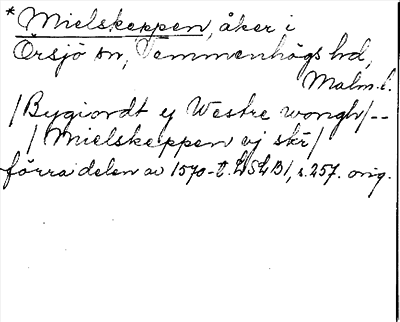 * Mielskeppen, åker i
Örsjö sn, Vemmenhögs hd,
Malm. l.
/Bygiordt ej Westre wongh/--
/Mielskeppen vj skr/
förra delen av 1570-t. LSLB1, s.257. orig.